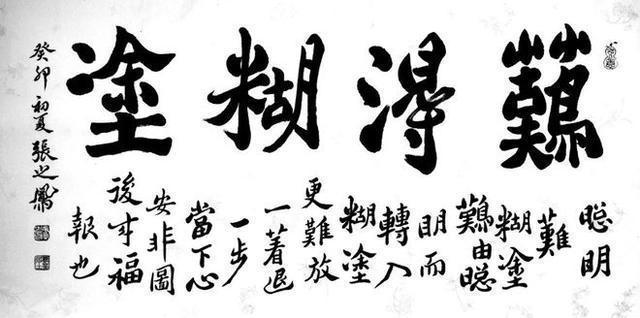 難得糊塗
聰明
難
糊塗
難由聰
明而
轉入
糊塗
更難放
一著退
一步
當下心
安非圖
後来福
報也
癸卯初夏張之